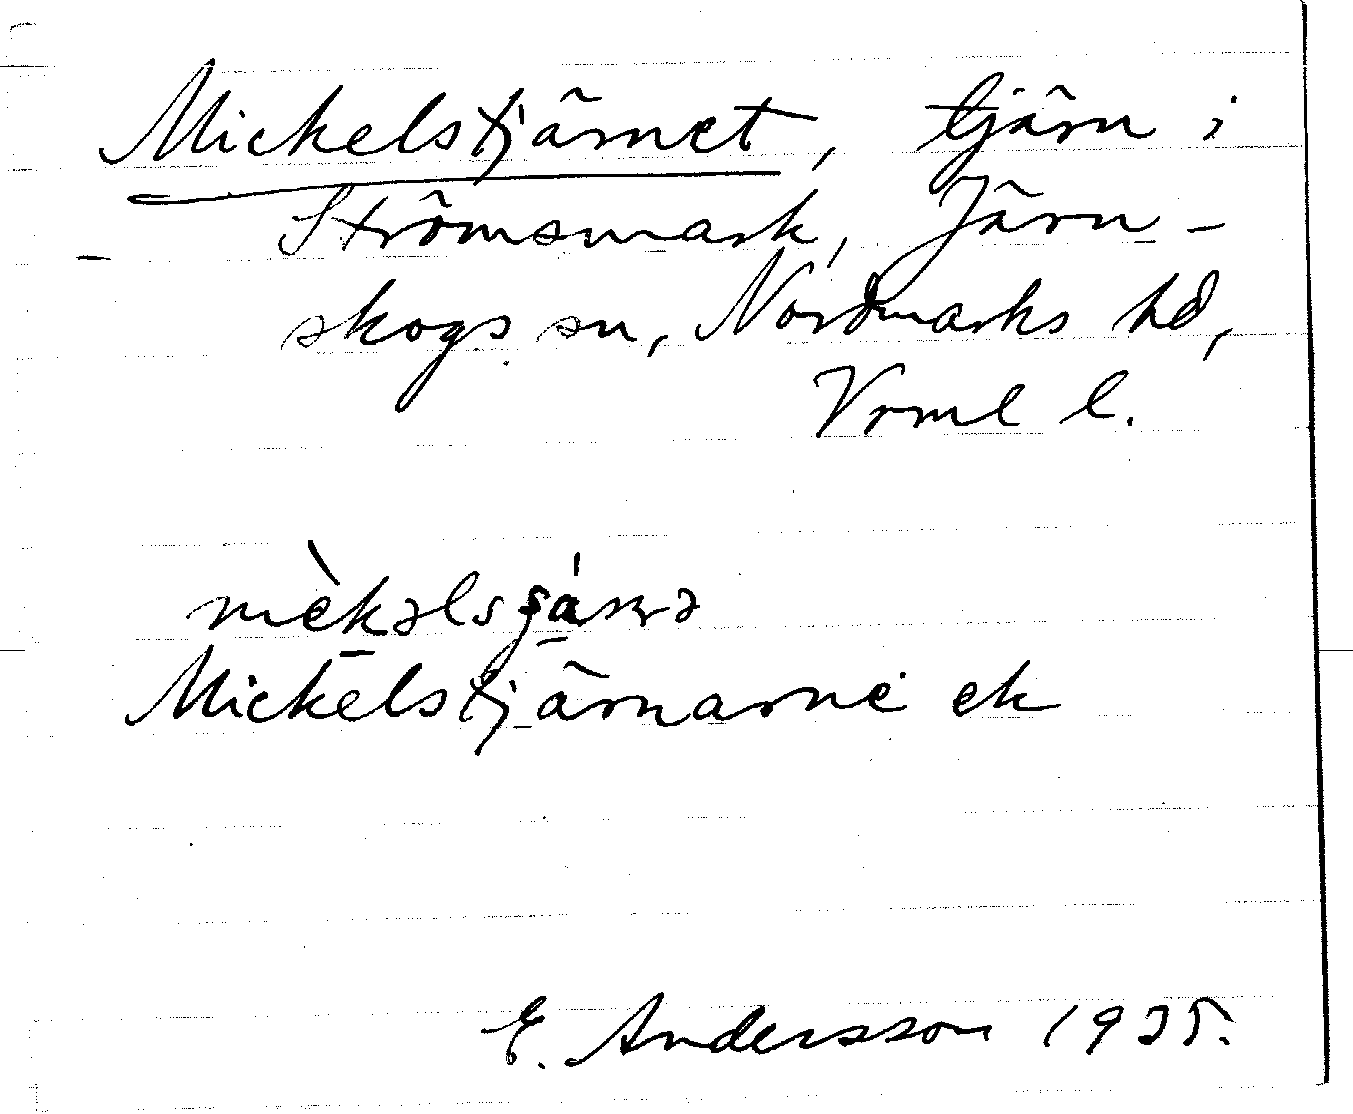 Mickelstjärnet, tjärn i
Strömsmark, Järn-
skogs sn, Nordmarks hd,
Vrml l.
Mickelstjärnarne ek
E. Andersson 1925.